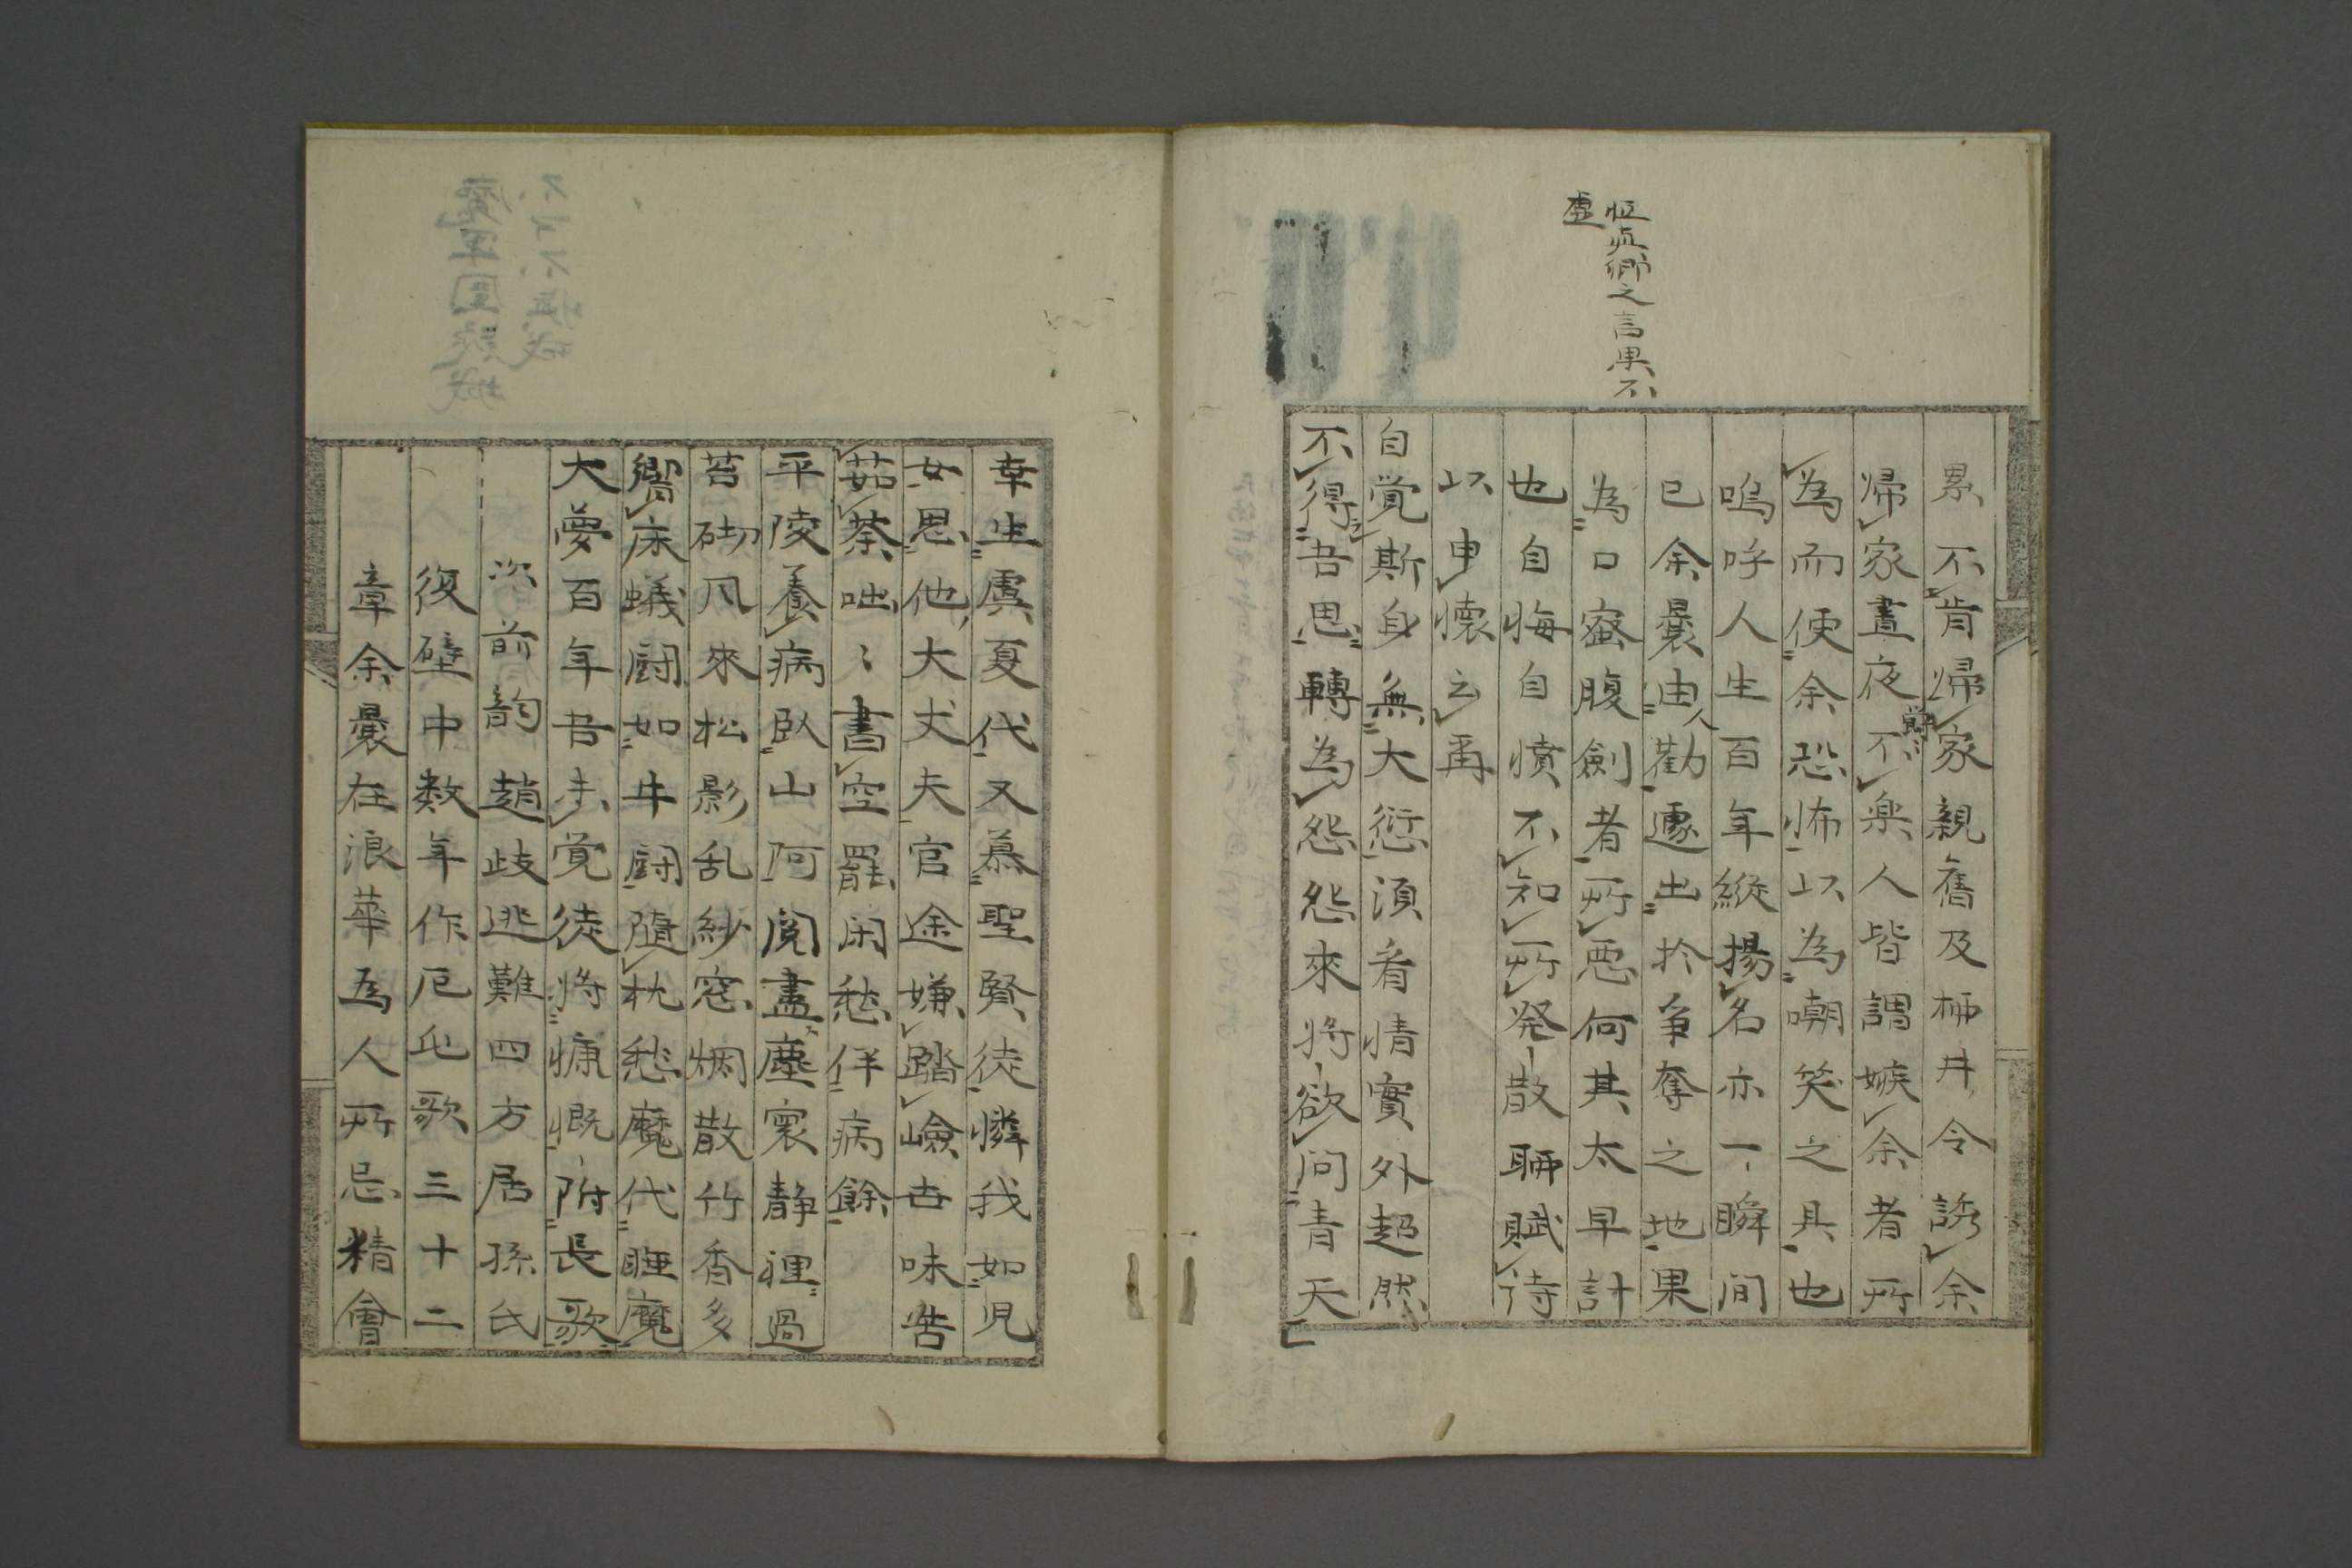 虚
累不肯帰家親舊及柄井令誘余
帰家晝夜不楽人皆謂嫉余者所
為而使余恐怖以為嘲笑之具也
嗚呼人生百年縦揚名亦一瞬間
已余曩由人勸遽出於争奪之地果
為口蜜腹劍者所惡何其太早計
也自悔自憤不知所発散聊賦待
以申懐云再
自覚斯身無大愆須看情實外超然
不得吾思轉為怨怨來將欲问青天
幸生虞夏代又慕聖賢徒憐我如児
女思他大丈夫官途嫌踏嶮世味告
茹荼咄々書空罷闲愁佯病餘
平陵養病臥山阿閲盡塵寰静裡過
苔砌风來松影乱紗窓烟散竹香多
嚮床蟻闘如牛闘隨枕愁魔代睡魔
大夢百年吾未覚徒將慷慨附長歌
次前韵趙歧逃難四方居孫氏
復壁中数年作厄屯歌三十二
章余曩在浪華為人所忌精會